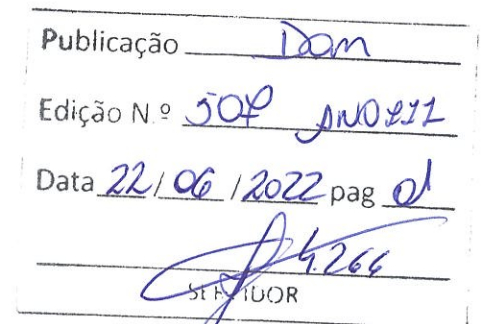 Publicação Dom
Edição N.º 507 ANO III
Data 22/06/2022 pag 01
4.266
SERVIDOR